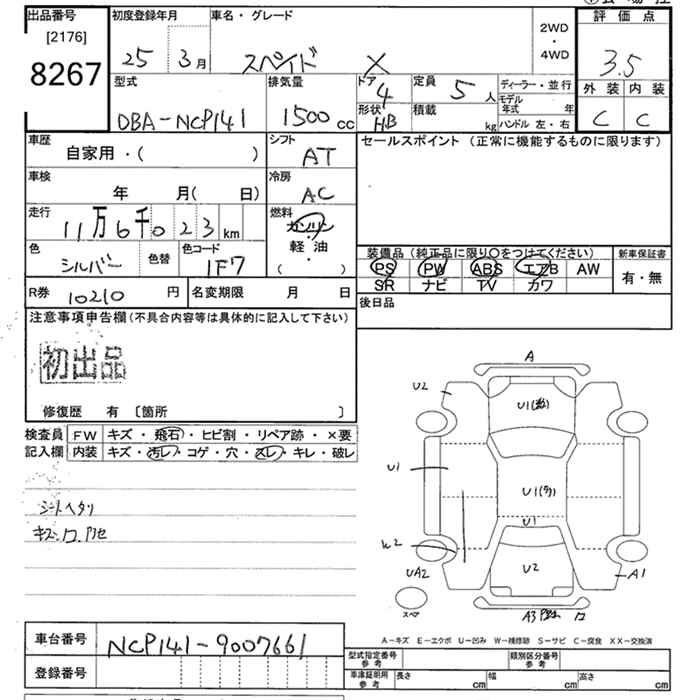 出品番号 初度登録年月 車名・グレード 評価点
[2176] 25 3月 スペイド X 2WD・4WD 3.5
8267 外装 内装
型式 排気量 ドア 定員 ディーラー・並行 C C
DBA-NCP141 1500cc 4 5人 モデル年式 年
形状 積載 HB kg ハンドル 左・右
車歴 シフト セールスポイント (正常に機能するものに限ります)
自家用・( ) AT
車検 冷房
年 月( 日) AC
走行 燃料
11万6千023km ガソリン
軽・油
( )
色 色替 色コード 装備品 (純正品に限り○をつけてください) 新車保証書
シルバー 1F7 PS PW ABS エアB AW 有・無
SR ナビ TV カワ
R券 10210円 名変期限 月 日 後日品
注意事項申告欄 (不具合内容等は具体的に記入して下さい)
初出品
修復歴 有 〔箇所 〕
検査員 FW キズ・飛石・ヒビ割・リペア跡・×要
記入欄 内装 キズ・汚レ・コゲ・穴・スレ・キレ・破レ
シートヘタリ
A
U2
U1
U1
U1
U1
W2
U2
UA2
A1
スペア
A3
A-キズ E-エクボ U-凹み W-補修跡 S-サビ C-腐食 XX-交換済
車台番号 NCP141-9007661
登録番号
型式指定番号 参考 類別区分番号 参考
車庫証明用 参考 長さ cm 幅 cm 高さ cm